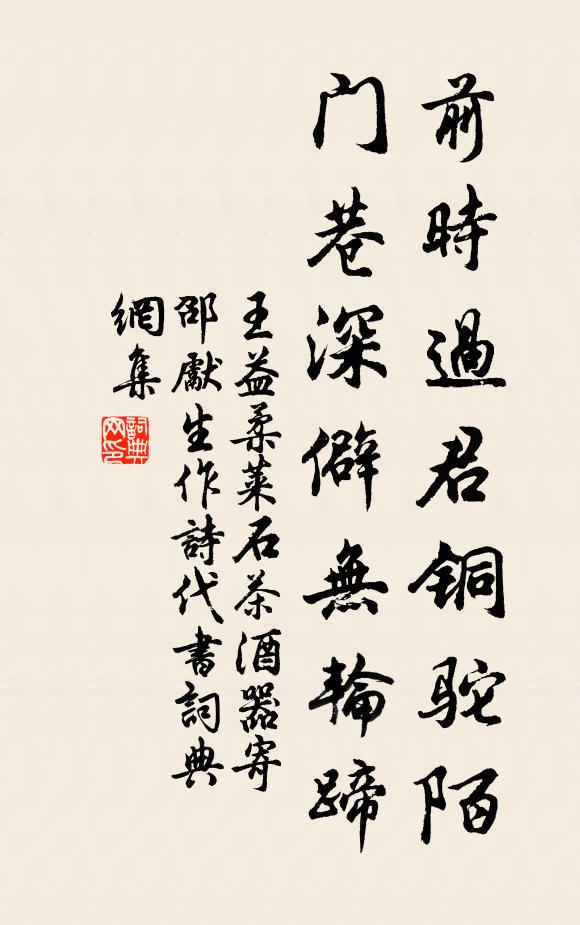 前時過君铜駝陌
门巷深僻無輪蹄
王益柔莱石茶酒器寄
邵獻生作詩代書詞典
網集
詞典
网印